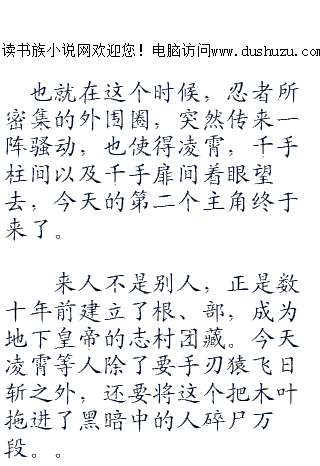 读书族小说网欢迎您！电脑访问www.dushuzu.com
也就在这个时候，忍者所
密集的外围圈，突然传来一
阵骚动，也使得凌霄，千手
柱间以及千手扉间着眼望
去，今天的第二个主角终于
来了。
来人不是别人，正是数
十年前建立了根、部，成为
地下皇帝的志村团藏。今天
凌霄等人除了要手刃猿飞日
斩之外，还要将这个把木叶
拖进了黑暗中的人碎尸万
段。。